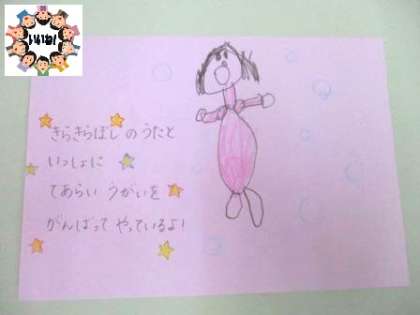 きらきらぼし のうたと
いっしょに
てあらい うがいを
がんばって やっているよ!